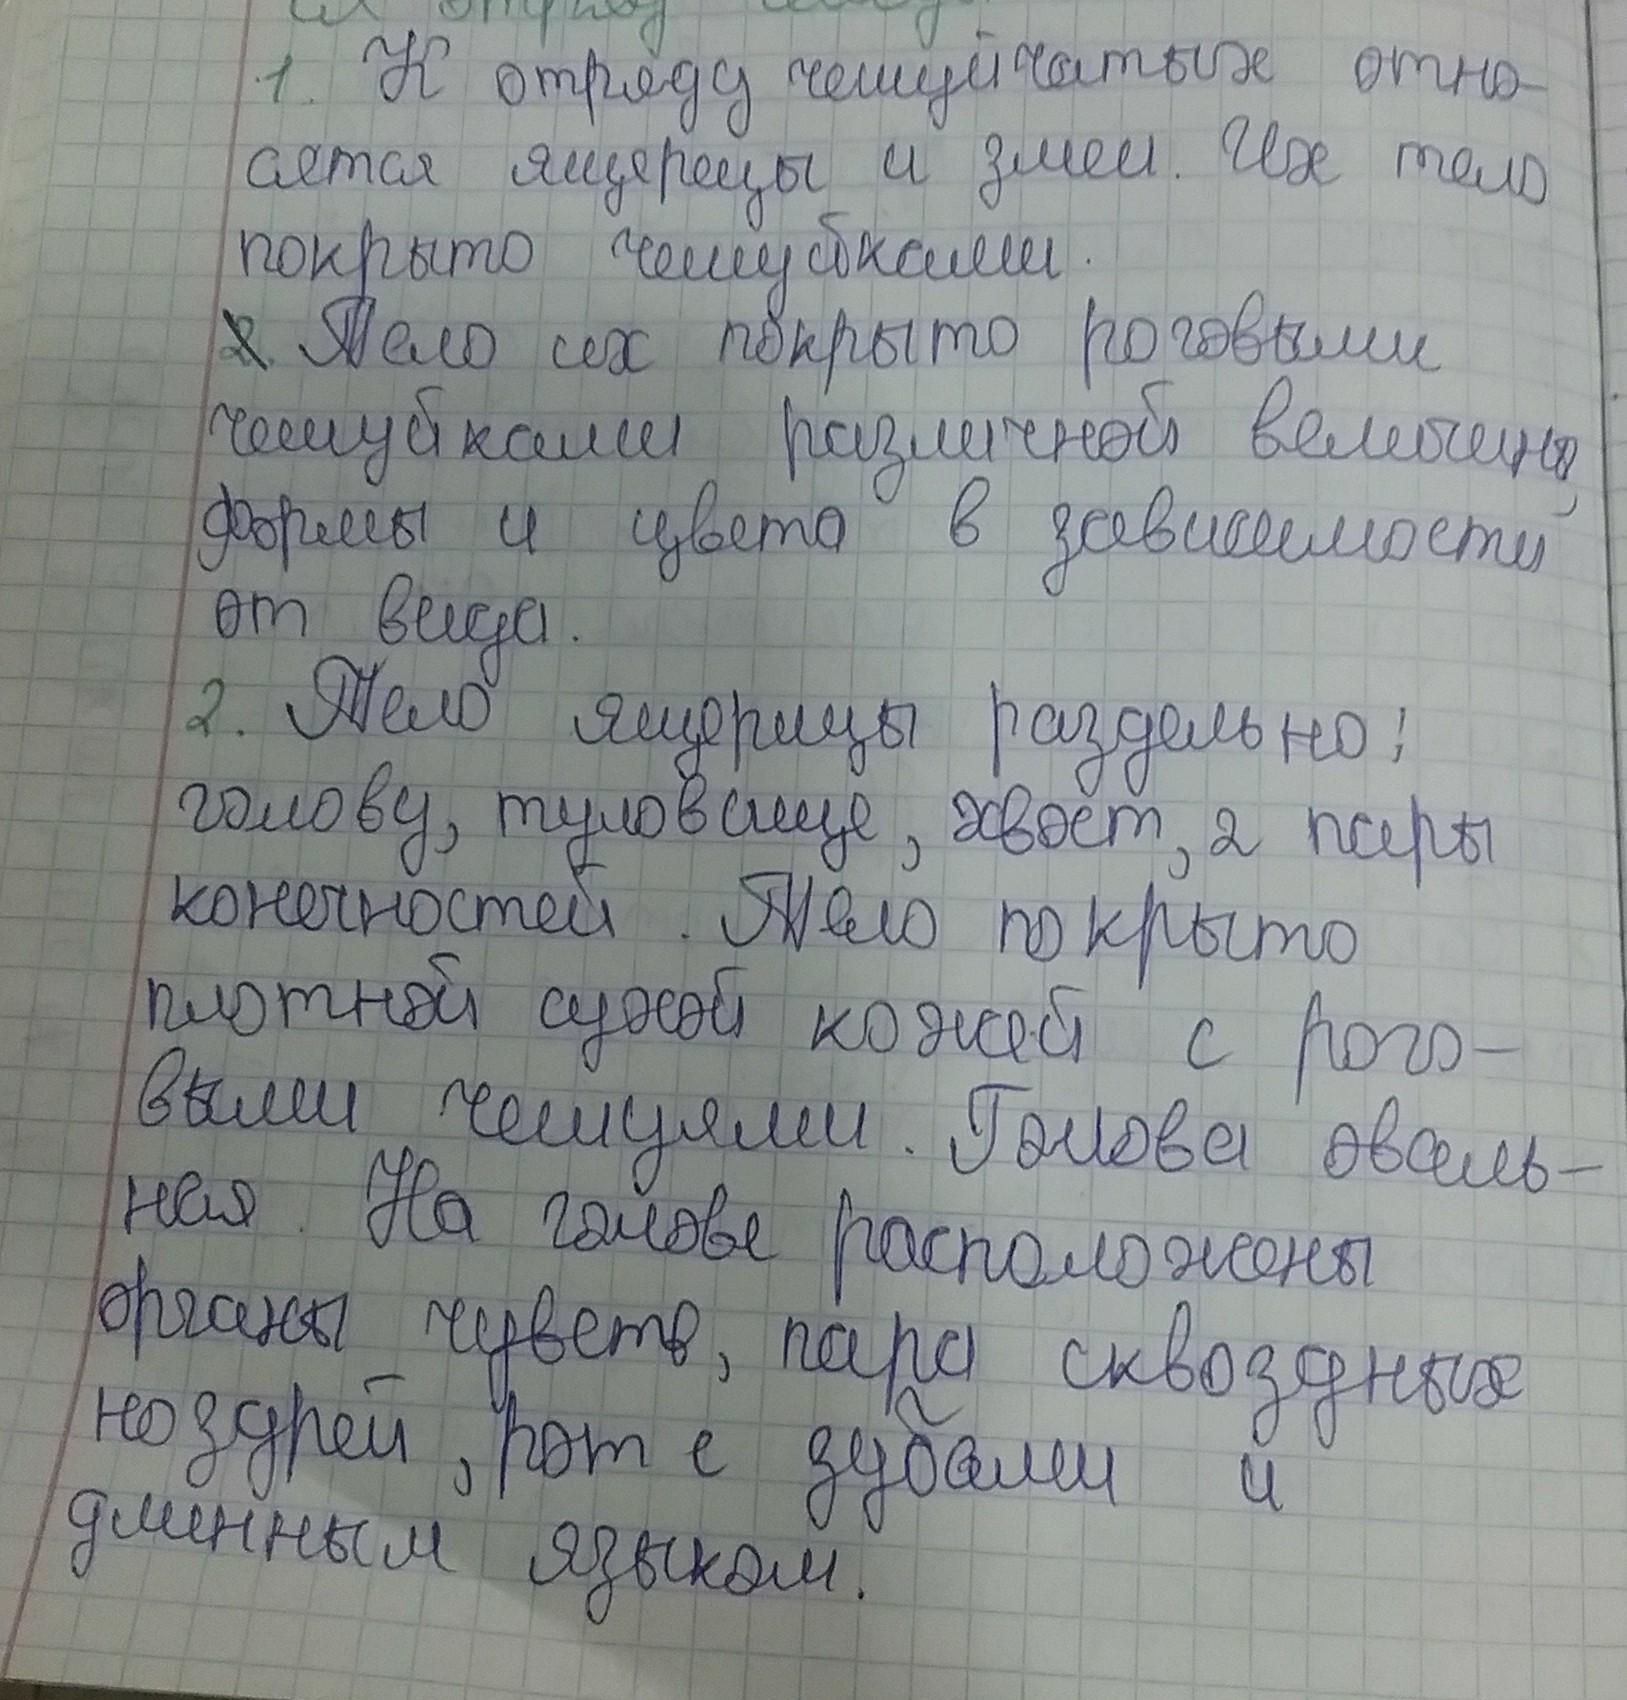 отряд
1. К отряду чешуйчатых отно-
сятся ящерицы и змеи. Их тело
покрыто чешуйками.
2. Тело их покрыто роговыми
чешуйками различной величины,
формы и цвета в зависимости
от вида.
2. Тело ящерицы раздельно:
голову, туловище, хвост, 2 пары
конечностей. Тело покрыто
плотной сухой кожей с рого-
выми чешуями. Голова оваль-
ная. На голове расположены
органы чувств, пара сквоздных
ноздрей, рот с зубами и
длинным языком.